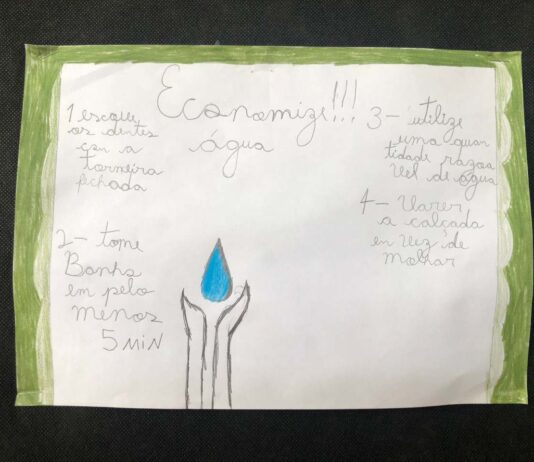 Economize!!!
água
1 escove
os dentes
con a
torneira
fichada
2- tome
Banho
em pelo
menos
5 MIN
3- utilize
uma quan
tidade razoa
vel de água
4- Varer
a calçada
en vez de
molhar